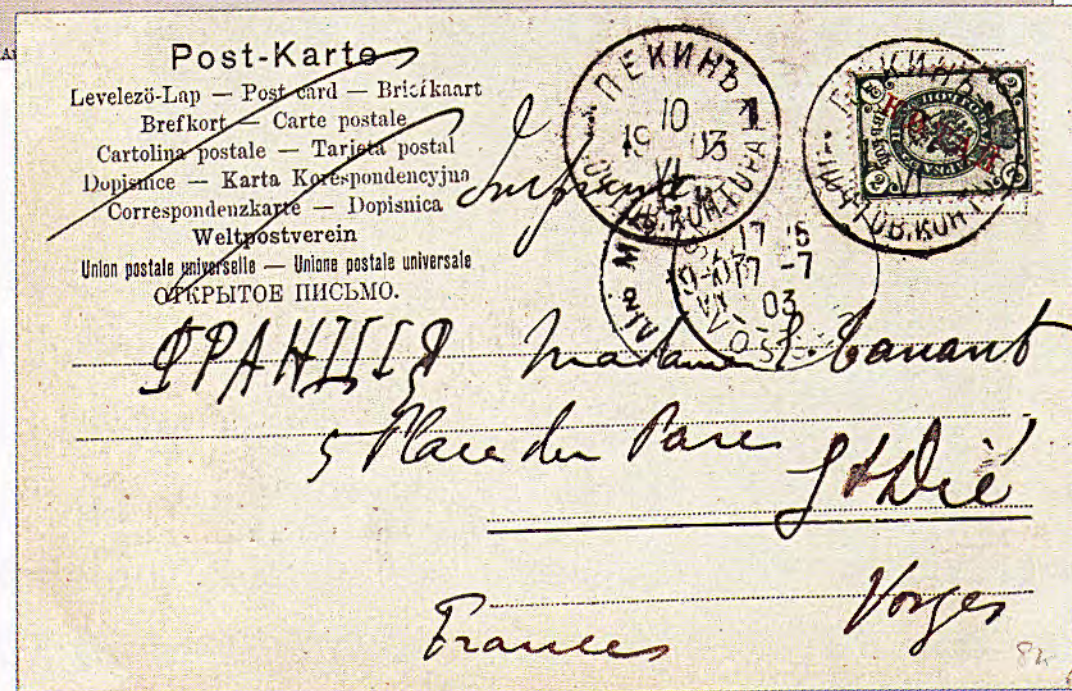 Post-Karte
Levelező-Lap — Post card — Briefkaart
Brefkort — Carte postale
Cartolina postale — Tarjeta postal
Dopisnice — Karta Korespondencyjna
Correspondenzkarte — Dopisnica
Weltpostverein
Union postale universelle — Unione postale universale
ОТКРЫТОЕ ПИСЬМО.
ПЕКИНЪ 1
10
1903
VI
ПОЧТОВ. КОНТОРА
ПЕКИНЪ
VI
ПОЧТОВ. КОНТОРА
КИТАЙ
2
2
2
2
17 6
17 -7
03
ФРАНЦІЯ Madame
5 Place du Parc
St Dié
Vosges
France